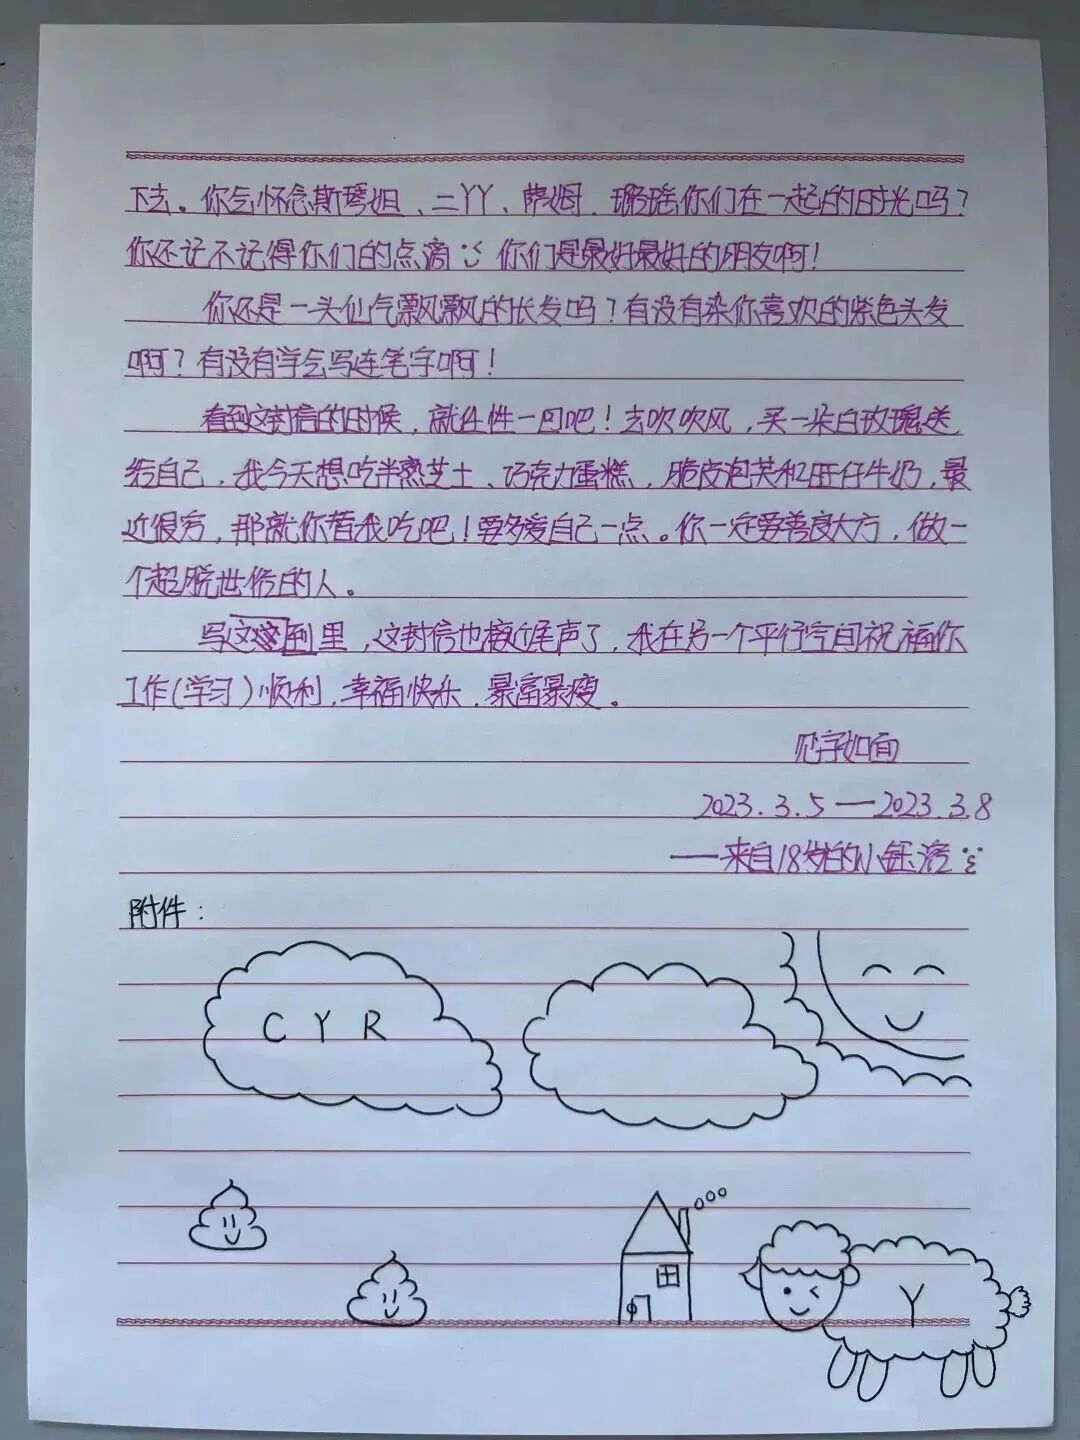 下去。你会怀念斯琴姐、二丫丫、萨姆、璐瑶你们在一起的时光吗？
你还记不记得你们的点滴 你们是最好最好的朋友啊！
你还是一头仙气飘飘的长发吗？有没有染你喜欢的紫色头发
啊？有没有学会写连笔字啊！
看到这封信的时候，就任性一回吧！去吹吹风，买一朵白玫瑰送
给自己，我今天想吃半熟芝士、巧克力蛋糕，脆皮泡芙和旺仔牛奶，最
近很穷，那就你替我吃吧！要多爱自己一点。你一定要善良大方，做一
个超脱世俗的人。
写到里，这封信也接近尾声了，我在另一个平行空间祝福你
工作(学习)顺利，幸福快乐，暴富暴瘦。
见字如面
2023.3.5——2023.3.8
——来自18岁的小钰
附件：
C Y R
Y